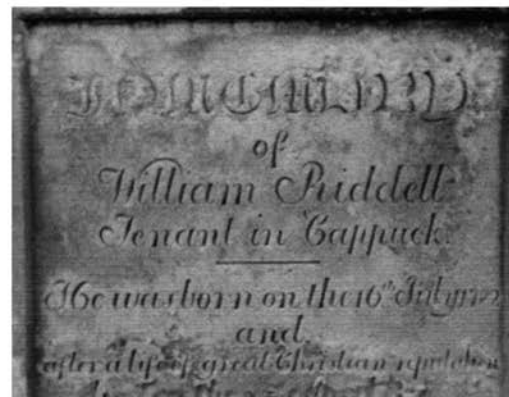 In Memory
of
William Riddell
Tenant in Cappuck.
He was born on the 16th July
and
after a life of great Christian reputation